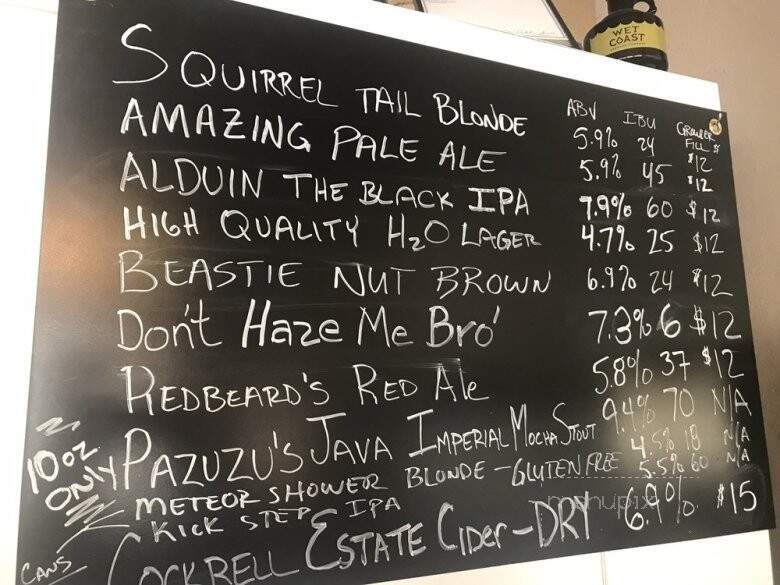 WET
COAST
ABV IBU GROWLER
FILL $
SQUIRREL TAIL BLONDE 5.9% 24 $12
AMAZING PALE ALE 5.9% 45 $12
ALDUIN THE BLACK IPA 7.9% 60 $12
HIGH QUALITY H2O LAGER 4.7% 25 $12
BEASTIE NUT BROWN 6.9% 24 $12
Don't Haze Me Bro' 7.3% 6 $12
REDBEARD'S RED Ale 5.8% 37 $12
10oz
ONLY PAZUZU'S JAVA IMPERIAL MOCHA STOUT 9.4% 70 N/A
METEOR SHOWER BLONDE - GLUTEN FREE 4.5% 18 N/A
KICK STEP IPA 5.5% 60 N/A
CANS
COCKRELL ESTATE CIDER - DRY 6.9% $15
menupix